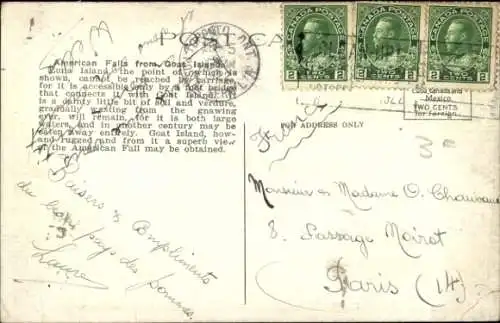 POST CARD
American Falls from Goat Island.
Luna Island, the point of which is
shown, cannot be reached by carriage,
for it is accessible only by a foot bridge
that connects it with Goat Island. It
is a dainty little bit of soil and verdure,
gradually wasting from the gnawing
river, will remain, for it is both large
waters, and in another century may be
eaten away entirely. Goat Island, how-
and rugged and from it a superb view
of the American Fall may be obtained.
baisers & Compliments
du beau pays des pommes.
Laure
CANADA POSTAGE
2 TWO CENTS 2
CANADA POSTAGE
2 CENTS 2
CANADA POSTAGE
2 TWO CENTS 2
Cuba Canada and
Mexico.
TWO CENTS
for Foreign.
FOR ADDRESS ONLY
France
Monsieur et Madame O. Chauveau
8. Passage Moirot
Paris (14)